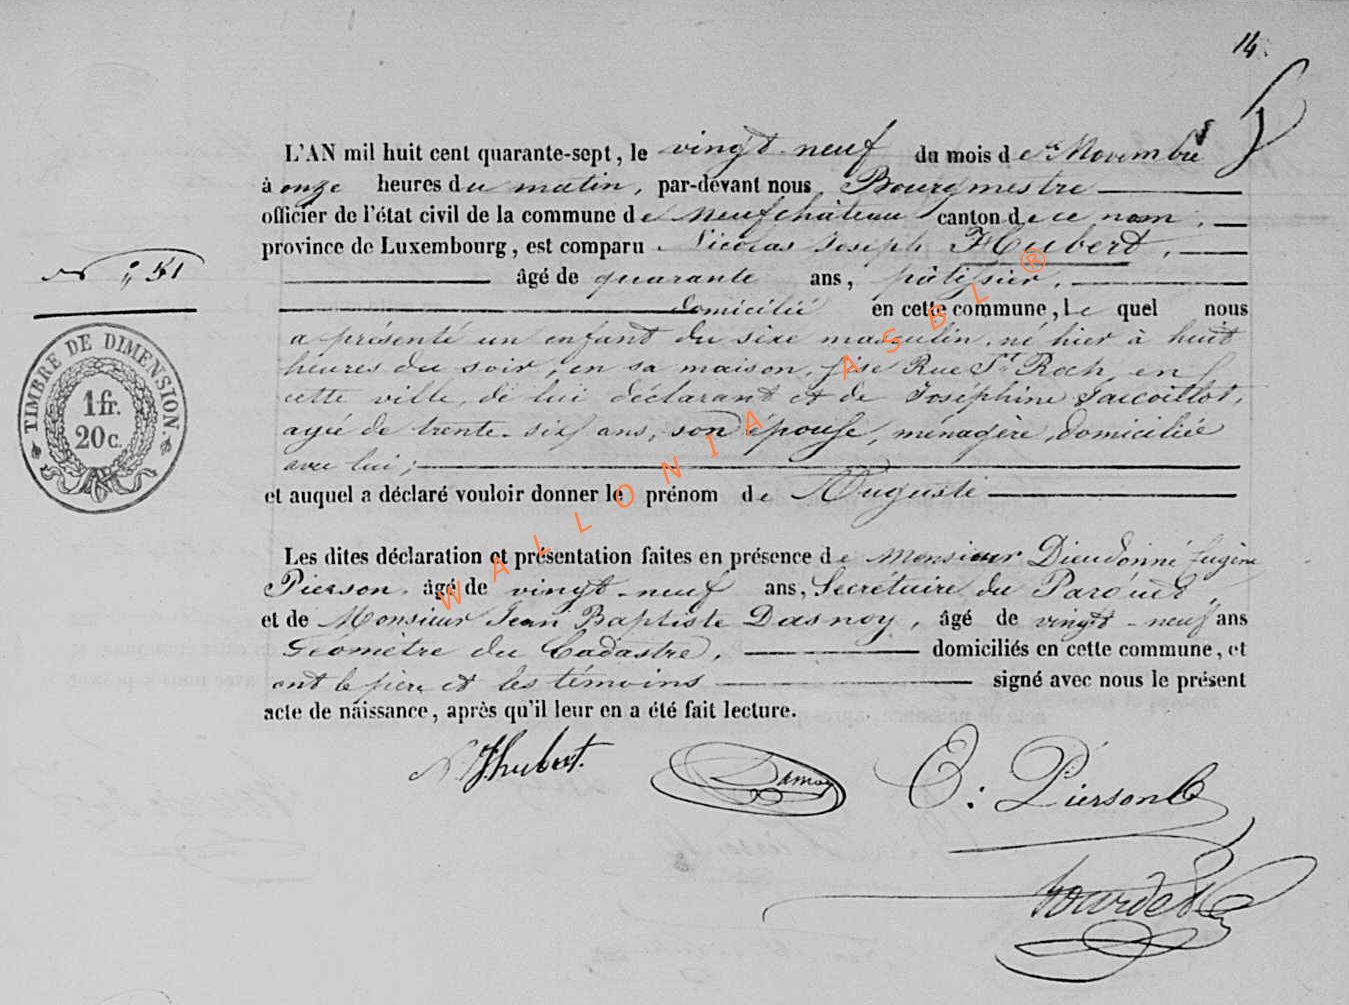 14.
L'AN mil huit cent quarante-sept, le vingt-neuf du mois de Novembre
à onze heures du matin, par-devant nous Bourgmestre
officier de l'état civil de la commune de Neufchâteau canton de ce nom,
province de Luxembourg, est comparu Nicolas Joseph Hubert,
âgé de quarante ans, pâtissier,
N° 51
domicilié en cette commune, le quel nous
a présenté un enfant du sexe masculin, né hier à huit
heures du soir, en sa maison, sise Rue St Roch en
cette ville, de lui déclarant et de Joséphine
agée de trente-six ans, son épouse, ménagère, domiciliée
avec lui;
et auquel a déclaré vouloir donner le prénom de Auguste
TIMBRE DE DIMENSION.
1 fr.
20 c.
Les dites déclaration et présentation faites en présence de Monsieur Dieudonné Eugène
Pierson, âgé de vingt-neuf ans, Secrétaire du Parquet,
et de Monsieur Jean Baptiste Dasnoy, âgé de vingt-neuf ans
Géomètre du Cadastre, domiciliés en cette commune, et
ont le père et les témoins signé avec nous le présent
acte de naissance, après qu'il leur en a été fait lecture.
N. J. hubert.
Dasnoy
E: Pierson
Bourdet
WALLONIA ASBL ®